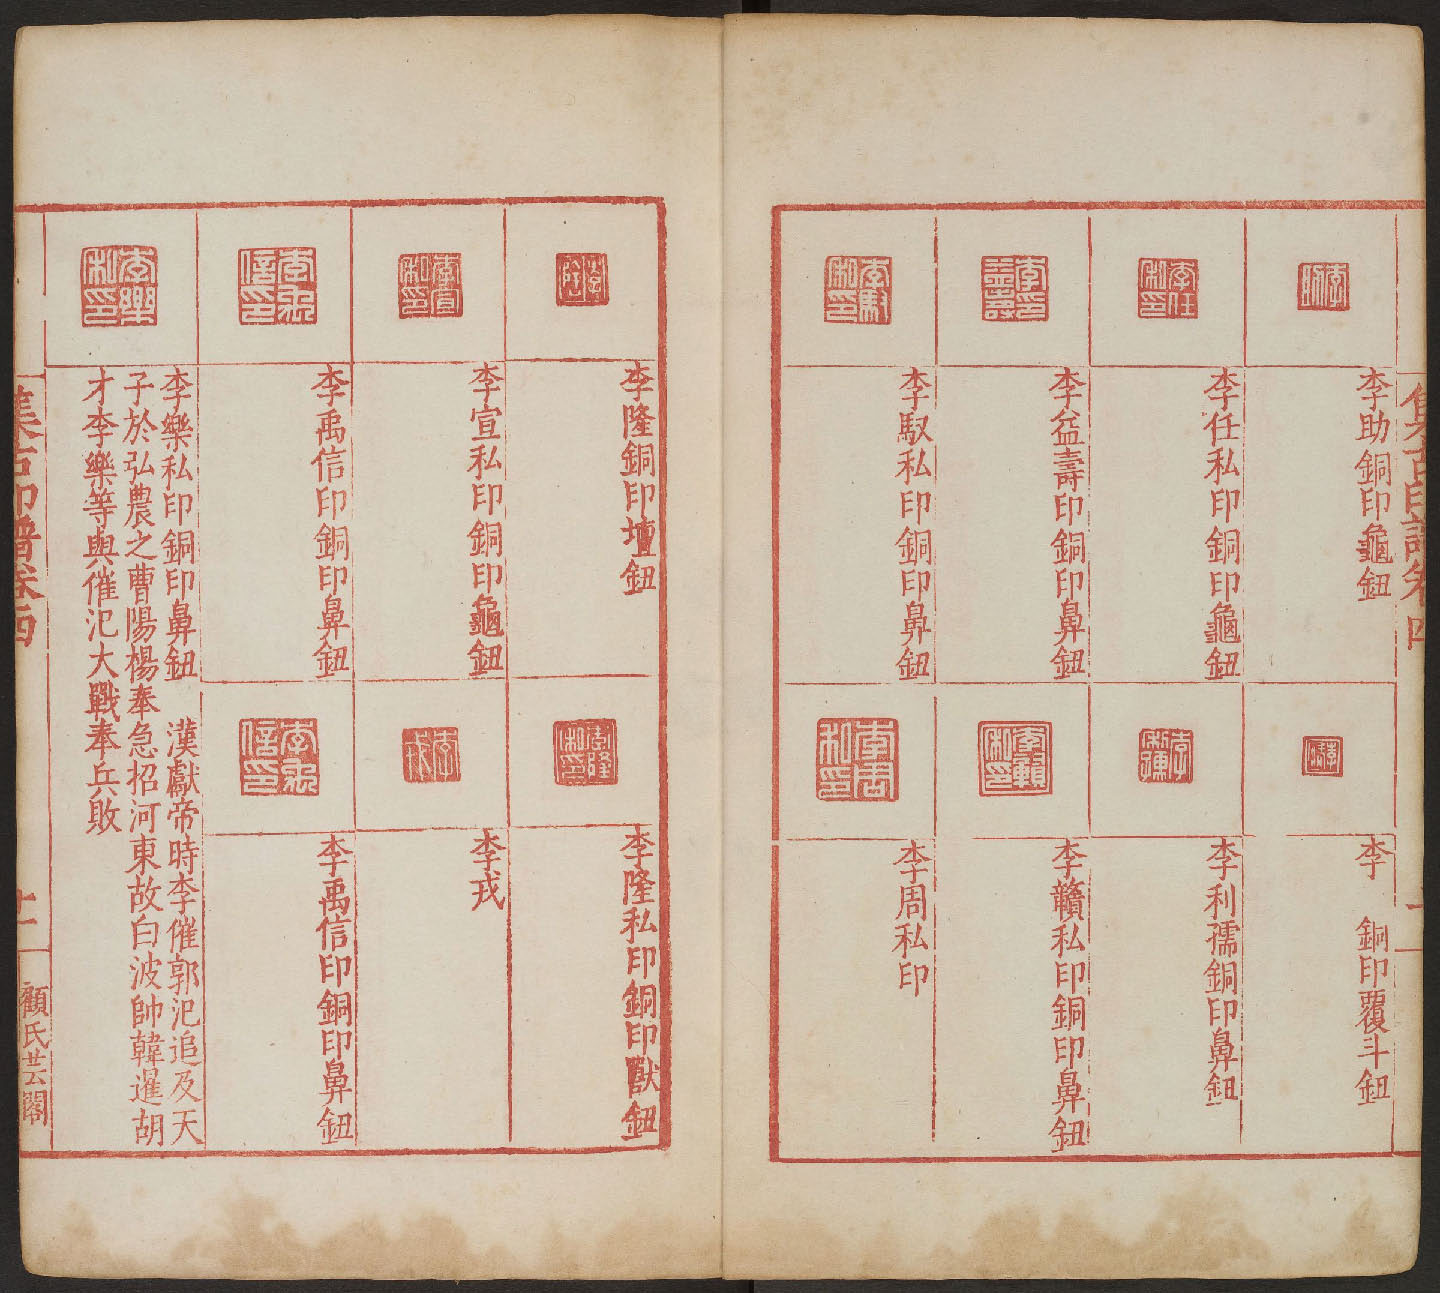 集古印譜卷四
李助銅印龜鈕
李任私印銅印龜鈕
李益壽印銅印鼻鈕
李馭私印銅印鼻鈕
李　銅印覆斗鈕
李利孺銅印鼻鈕
李贛私印銅印鼻鈕
李周私印
李隆銅印壇鈕
李宣私印銅印龜鈕
李禹信印銅印鼻鈕
李隆私印銅印獸鈕
李戎
李禹信印銅印鼻鈕
李樂私印銅印鼻鈕　漢獻帝時李傕郭汜追及天
子於弘農之曹陽楊奉急招河東故白波帥韓暹胡
才李樂等與傕汜大戰奉兵敗
集古印譜卷四
十一
顧氏芸閣